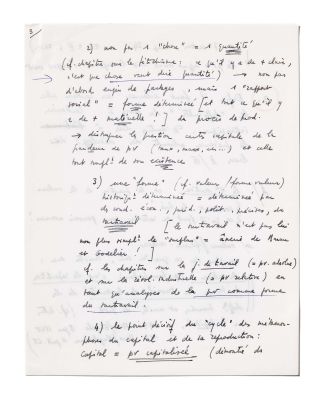 3
2) non pas 1 "chose" = 1 quantité
(cf. chapitre sur le fétichisme : ce qu'il y a de + clair,
c'est que chose veut dire quantité) → non pas
d'abord enjeu de partages, mais 1 "rapport
social" = forme déterminée [et tout ce qu'il y
a de + matérielle !] du procès de prod.
→ distinguer la question certes capitale de la
grandeur de pv (taux, masse, ...) et celle
tout simplt de son existence
3) une "forme" (cf. valeur / forme valeur)
historiqt déterminée = déterminée par
ds cond. écon., jurid., polit., précises, du
surtravail [le surtravail n'est pas lui
non plus simplt le "surplus" =
et Godelier ! ]
cf. les chapitres sur la j. de travail (= pv. absolue)
et sur la révol. industrielle (= pv relative) en
tant qu'analyses de la pv comme forme
du surtravail.
4) le point décisif du "cycle" des métamor-
phoses du capital et de sa reproduction :
capital = pv capitalisée (démontré ds